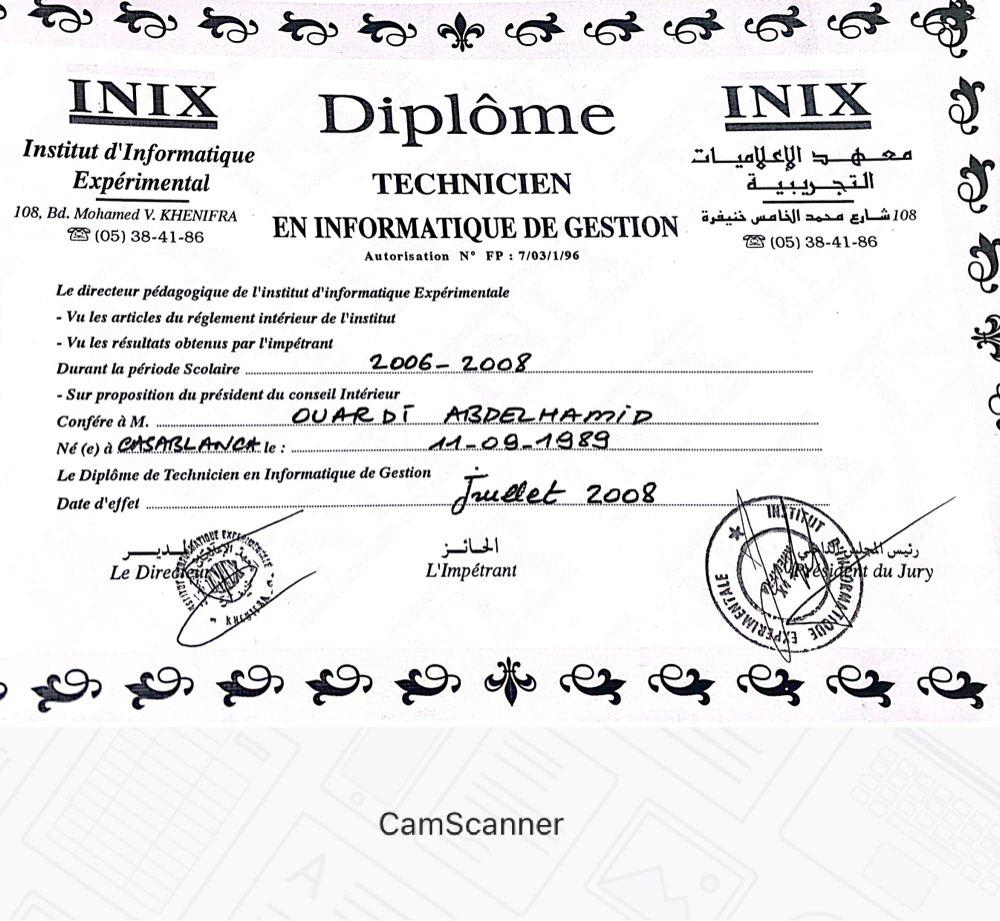 INIX
Institut d'Informatique
Expérimental
108, Bd. Mohamed V. KHENIFRA
☏ (05) 38-41-86
Diplôme
TECHNICIEN
EN INFORMATIQUE DE GESTION
Autorisation N° FP : 7/03/1/96
INIX
معهد الإعلاميات
التجريبية
108 شارع محمد الخامس خنيفرة
☏ (05) 38-41-86
Le directeur pédagogique de l'institut d'informatique Expérimentale
- Vu les articles du réglement intérieur de l'institut
- Vu les résultats obtenus par l'impétrant
Durant la période Scolaire 2006-2008
- Sur proposition du président du conseil Intérieur
Confére à M. OUARDI ABDELHAMID
Né (e) à CASABLANCA le : 11-09-1989
Le Diplôme de Technicien en Informatique de Gestion
Date d'effet Juillet 2008
المدير
Le Directeur
الحائز
L'Impétrant
رئيس المجلس
Président du Jury
INSTITUT D'INFORMATIQUE EXPERIMENTALE
KHENIFRA
CamScanner